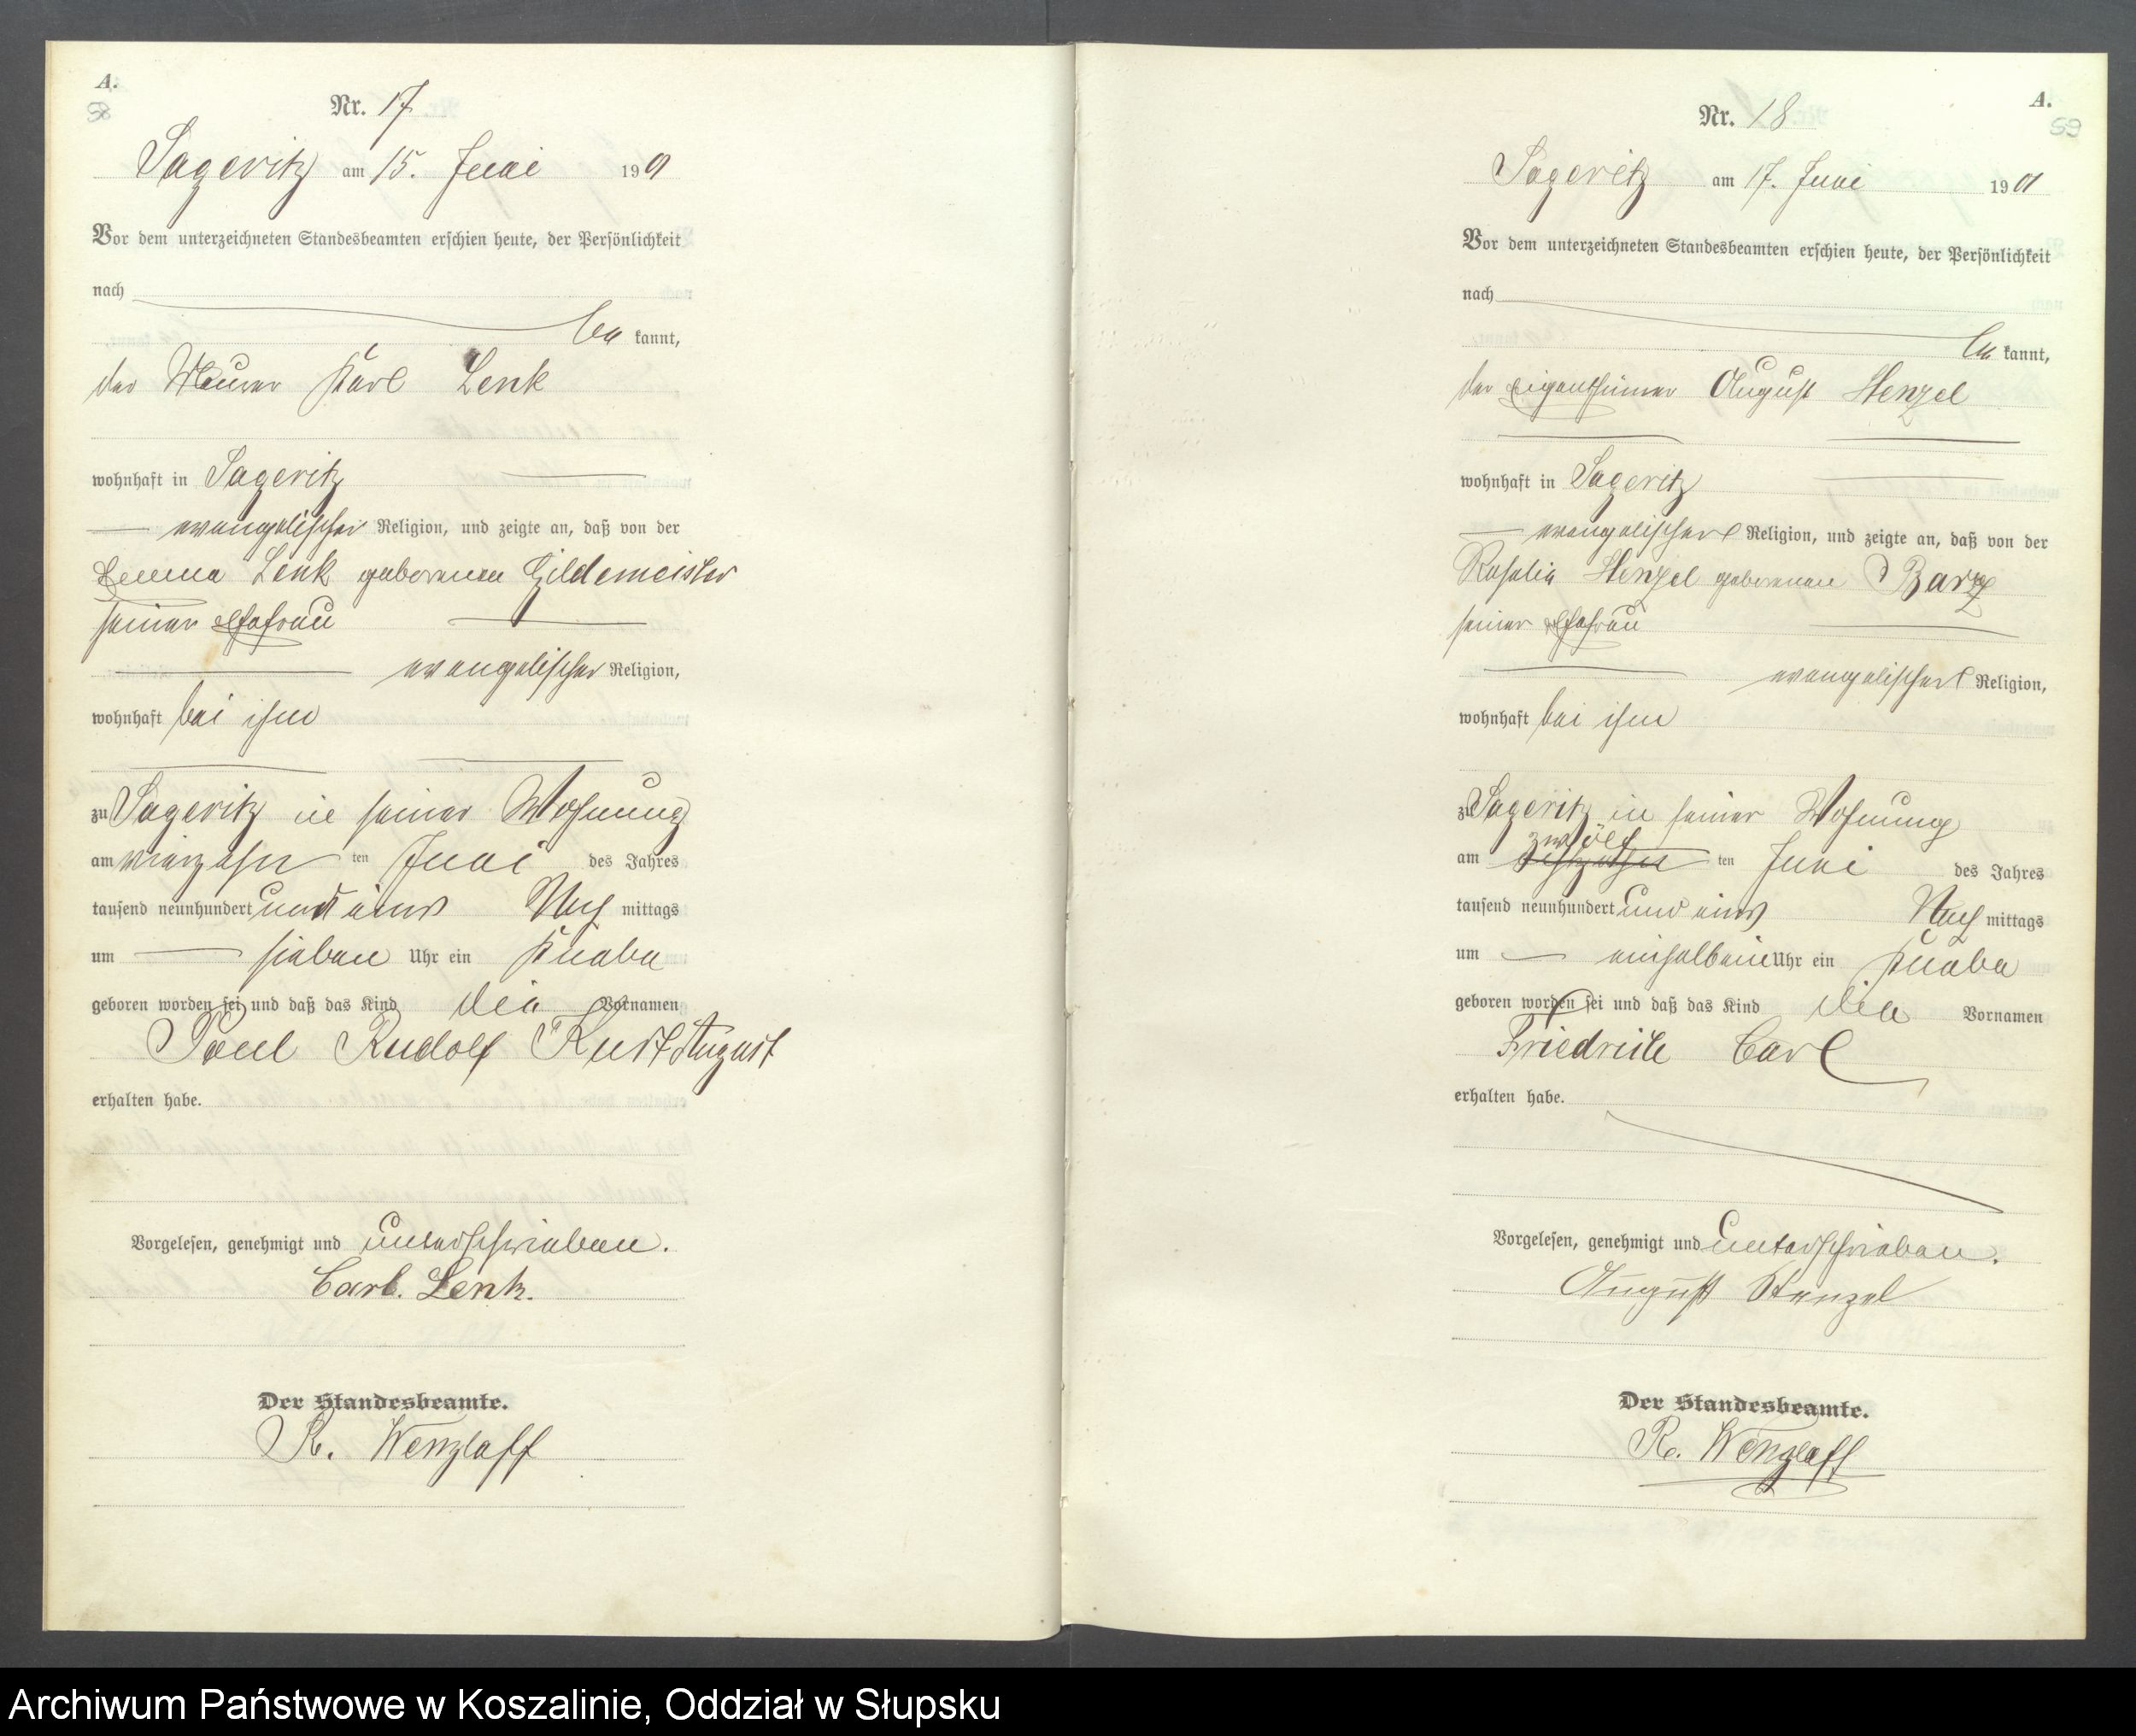 A.
58
Nr. 17
Sageritz am 15. Juni 1901
Vor dem unterzeichneten Standesbeamten erschien heute, der Persönlichkeit
nach
be kannt,
der Maurer Karl Lenk
wohnhaft in Sageritz
evangelischer Religion, und zeigte an, daß von der
Emma Lenk geborenen Gildemeister
seiner Ehefrau
evangelischer Religion,
wohnhaft bei ihm
zu Sageritz in seiner Wohnung
am vierzehn ten Juni des Jahres
tausend neunhundert und eins Nach mittags
um sieben Uhr ein Knabe
geboren worden sei und daß das Kind die Vornamen
Paul Rudolf Kurt August
erhalten habe.
Vorgelesen, genehmigt und unterschrieben.
Carl. Lenk.
Der Standesbeamte.
R. Wenzlaff
A.
59
Nr. 18
Sageritz am 17. Juni 1901
Vor dem unterzeichneten Standesbeamten erschien heute, der Persönlichkeit
nach
be kannt,
der Eigenthümer August Henzel
wohnhaft in Sageritz
evangelischer Religion, und zeigte an, daß von der
Rosalie Henzel geborenen Barz
seiner Ehefrau
evangelischer Religion,
wohnhaft bei ihm
zu Sageritz in seiner Wohnung
zwölf
am ten Juni des Jahres
tausend neunhundert und eins Nach mittags
um einhalbein Uhr ein Knabe
geboren worden sei und daß das Kind die Vornamen
Friedrich Carl
erhalten habe.
Vorgelesen, genehmigt und unterschrieben.
August Henzel
Der Standesbeamte.
R. Wenzlaff
Archiwum Państwowe w Koszalinie, Oddział w Słupsku